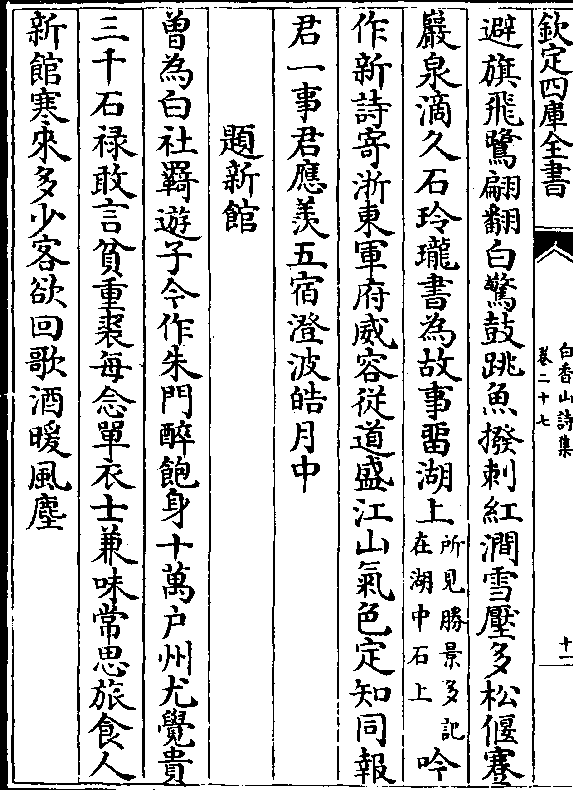 欽定四庫全書
白香山詩集
卷二十七
十一
避旗飛鷺翩翻白驚鼓跳魚撥刺紅澗雪壓多松偃蹇
巖泉滴久石玲瓏書為故事畱湖上所見勝景多記在湖中石上吟
作新詩寄浙東軍府威容從道盛江山氣色定知同報
君一事君應羡五宿澄波皓月中
題新館
曽為白社羇遊子今作朱門醉飽身十萬户州尤覺貴
三千石禄敢言貧重裘每念單衣士兼味常思旅食人
新館寒來多少客欲回歌酒暖風塵